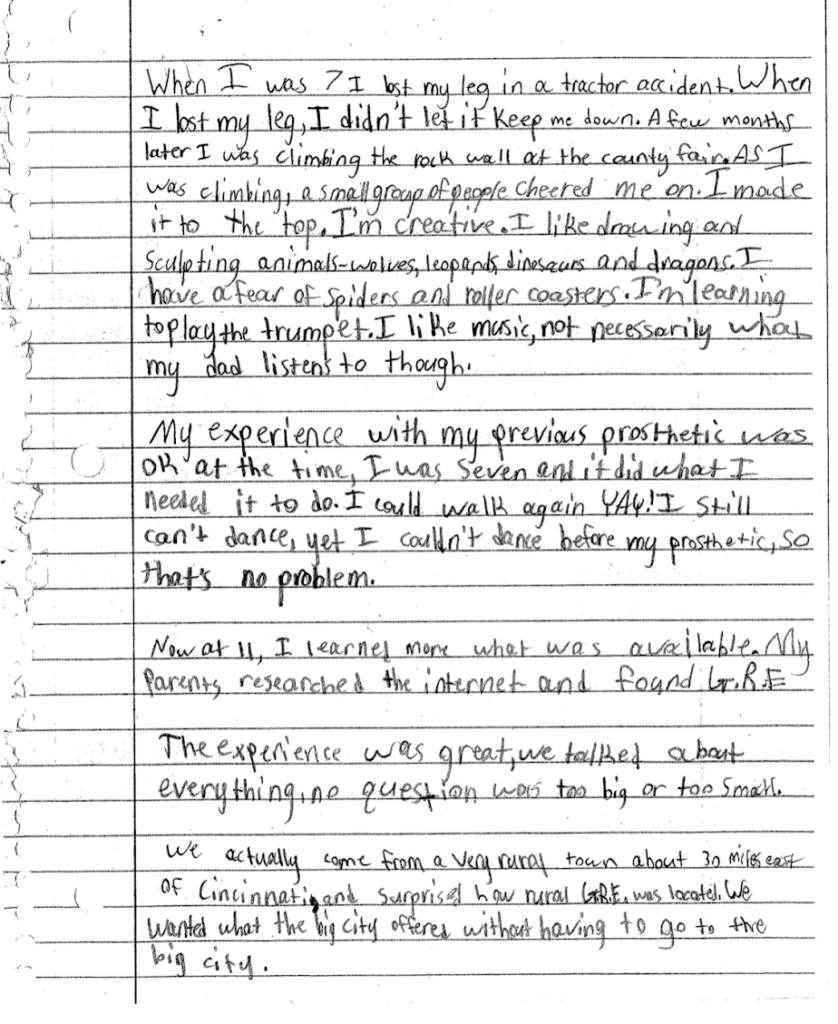 When I was 7 I lost my leg in a tractor accident. When
I lost my leg, I didn't let it keep me down. A few months
later I was climbing the rock wall at the county fair. AS I
was climbing, a small group of people cheered me on. I made
it to the top. I'm creative. I like drawing and
sculpting animals-wolves, leopards, dinosaurs and dragons. I
have a fear of spiders and roller coasters. I'm learning
to play the trumpet. I like music, not necessarily what
my dad listens to though.
My experience with my previous prosthetic was
OK at the time, I was seven and it did what I
needed it to do. I could walk again YAY! I still
can't dance, yet I couldn't dance before my prosthetic, so
that's no problem.
Now at 11, I learned more what was available. My
Parents researched the internet and found G.R.E
The experience was great, we talked about
everything, no question was too big or too small.
We actually come from a very rural town about 30 miles east
of Cincinnati, and surprised how rural G.R.E. was located. We
wanted what the big city offered without having to go to the
big city.